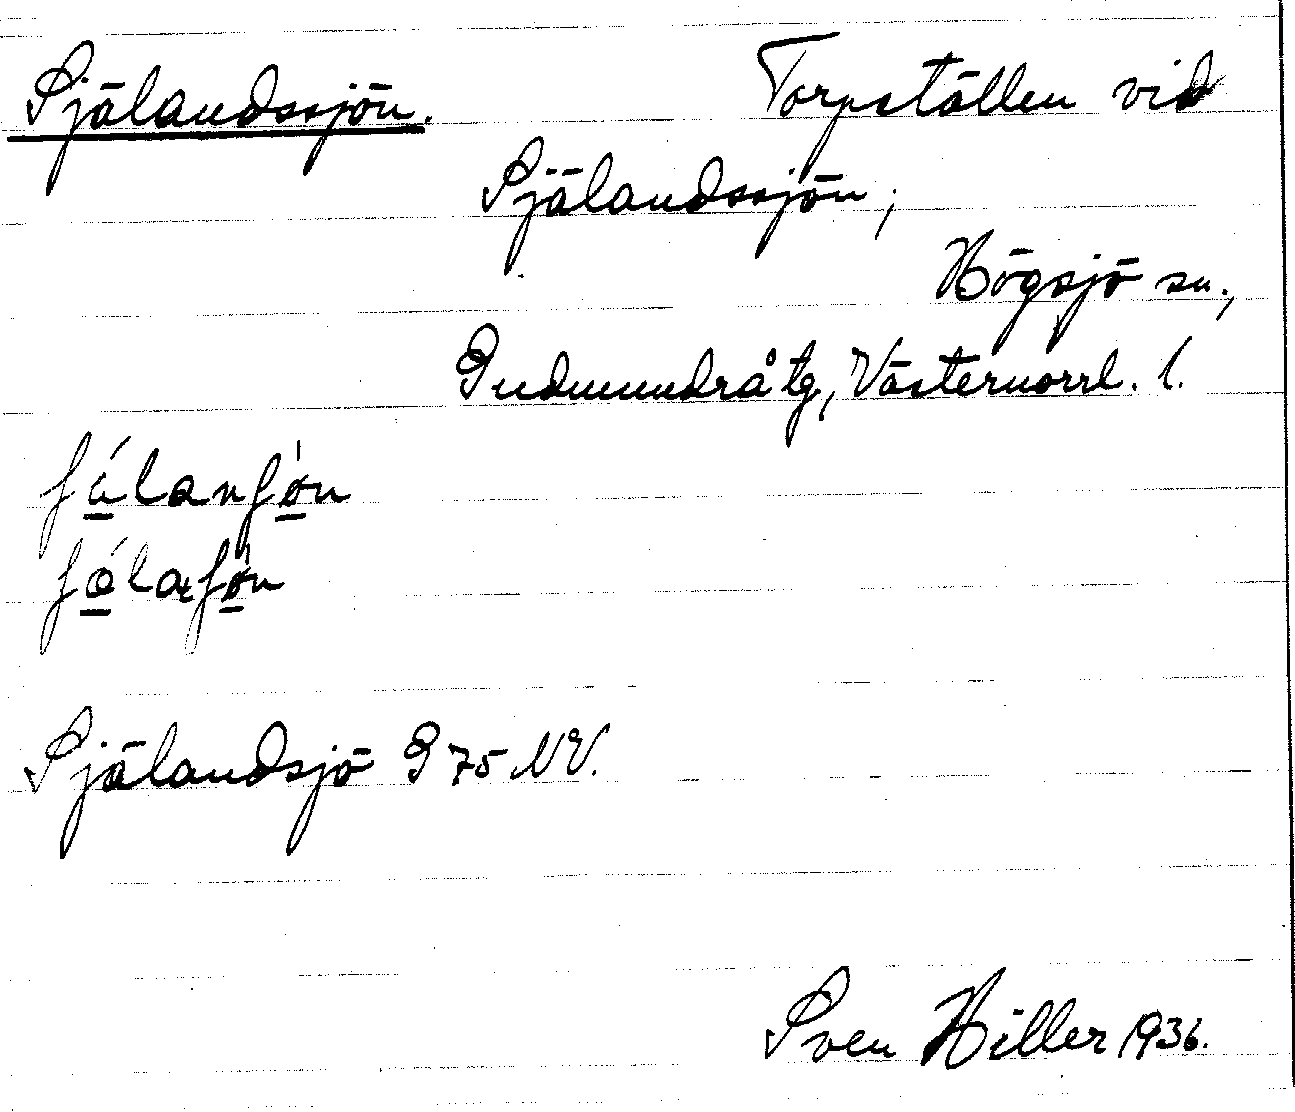 Själandssjön. Torpställen vid
Själandssjön,
Högsjö sn.,
Gudmundrå tg, Västernorrl. l.
Själandsjö G 75 NV.
Sven Hiller 1936.